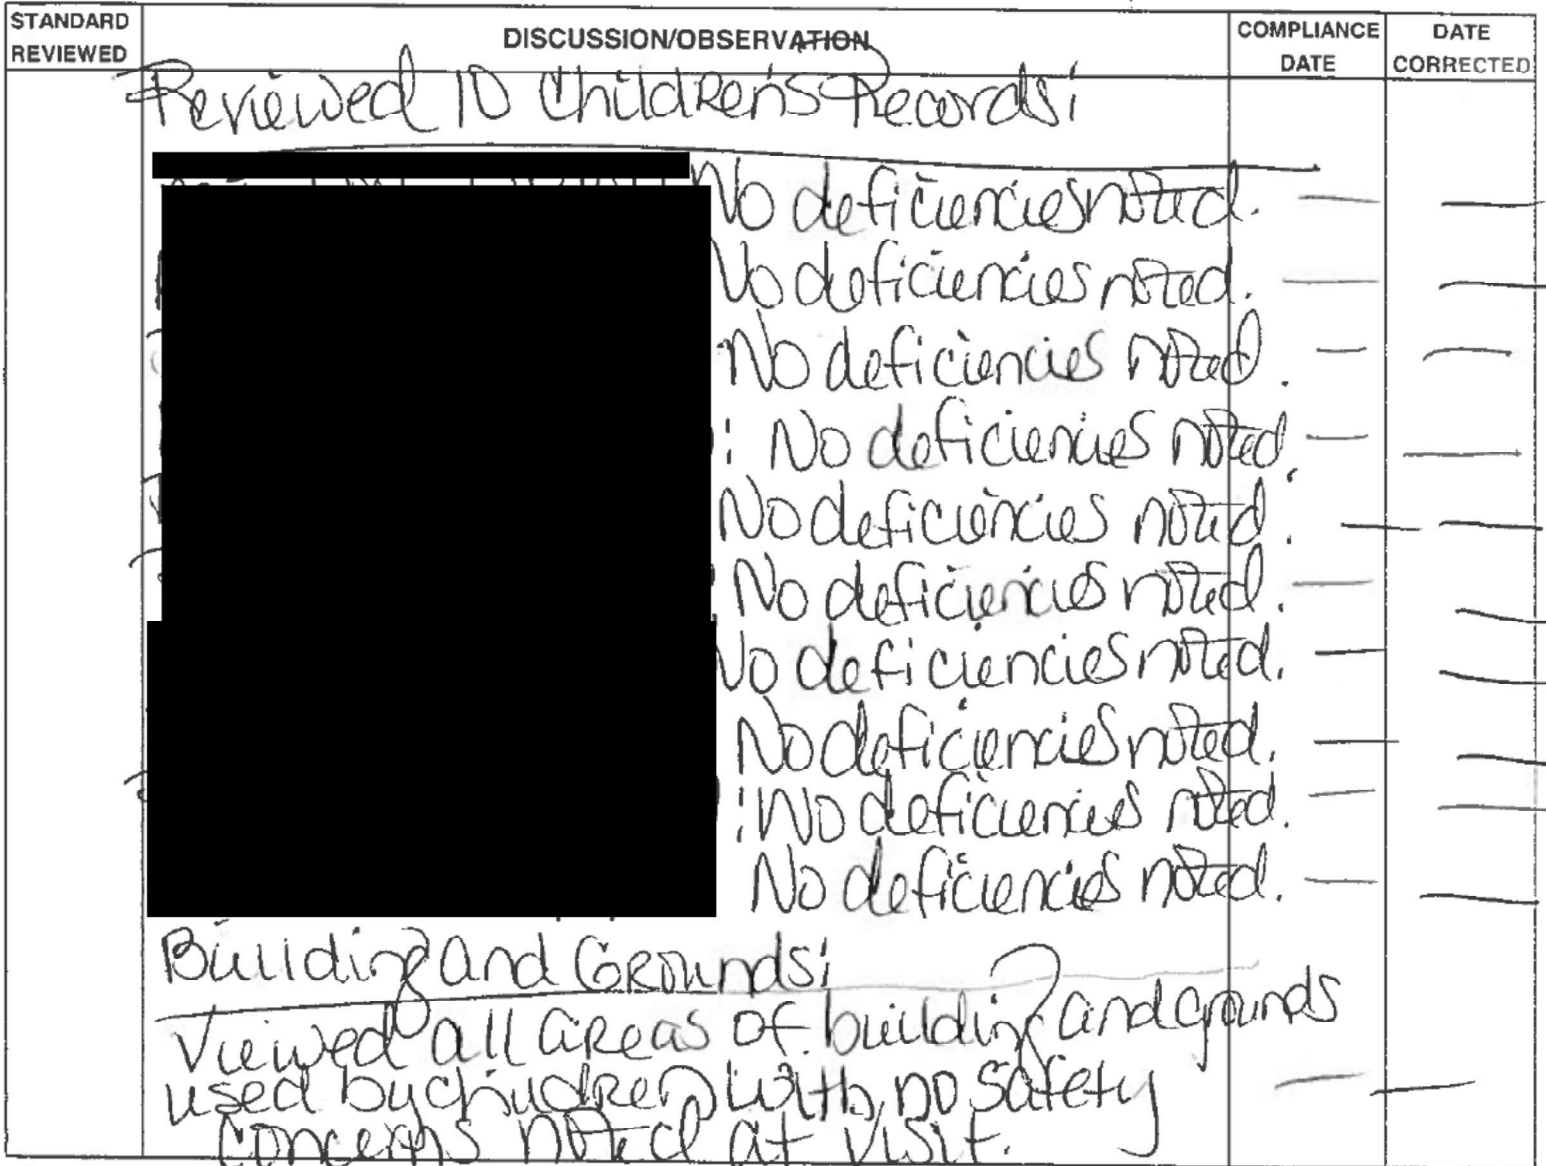 STANDARD REVIEWED
DISCUSSION/OBSERVATION
COMPLIANCE DATE
DATE CORRECTED
Reviewed 10 Children's Records:
No deficiencies noted. — —
No deficiencies noted. — —
No deficiencies noted. — —
: No deficiencies noted. — —
No deficiencies noted. — —
No deficiencies noted. — —
No deficiencies noted. — —
No deficiencies noted. — —
: No deficiencies noted. — —
No deficiencies noted. — —
Building and Grounds:
Viewed all areas of building and grounds
used by children with no safety — —
concerns noted at visit.